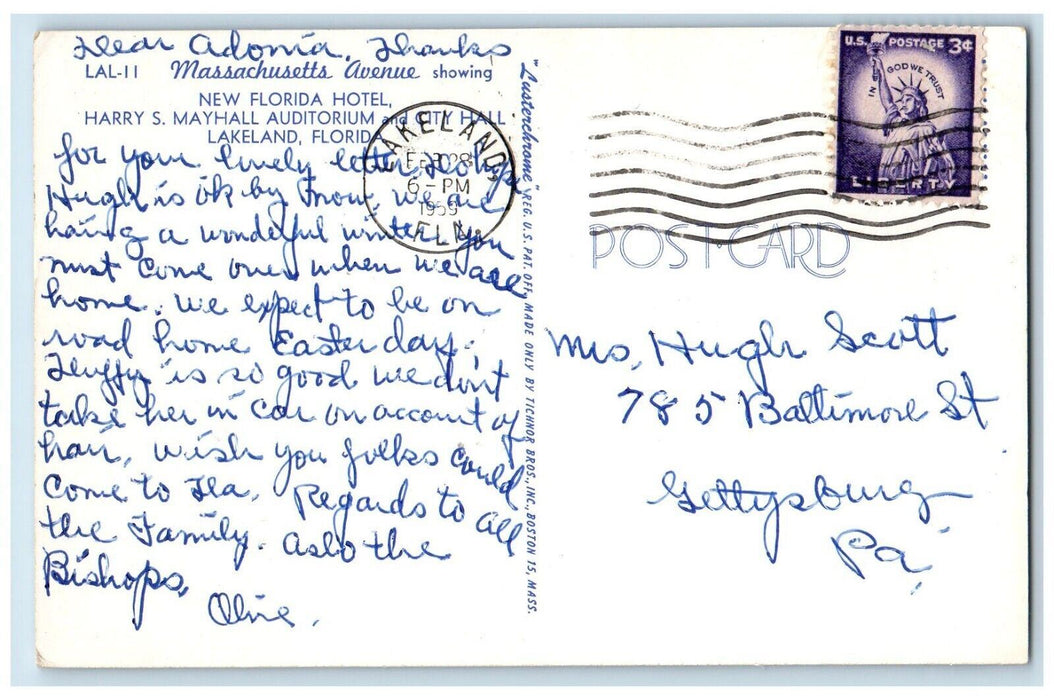 Dear Adonia, Thanks
LAL-11 Massachusetts Avenue showing
NEW FLORIDA HOTEL,
HARRY S. MAYHALL AUDITORIUM and CITY HALL
LAKELAND, FLORIDA
for your lovely letter, Hope
Hugh is ok by now, we are
having a wonderful winter. You
must come over when we are
home. We expect to be on
road home Easter day;
Fluffy is so good we don't
take her in car on account of
hair, wish you folks could
come to Fla. Regards to all
the Family. Aslo the
Bishops,
Olive.
"Lusterchrome" REG. U.S. PAT. OFF., MADE ONLY BY TICHNOR BROS., INC., BOSTON 15, MASS.
LAKELAND
FEB 28
6-PM
1959
FLA.
U.S. POSTAGE 3¢
IN GOD WE TRUST
LIBERTY
POST CARD
Mrs, Hugh Scott
785 Baltimore St
Gettysburg
Pa,